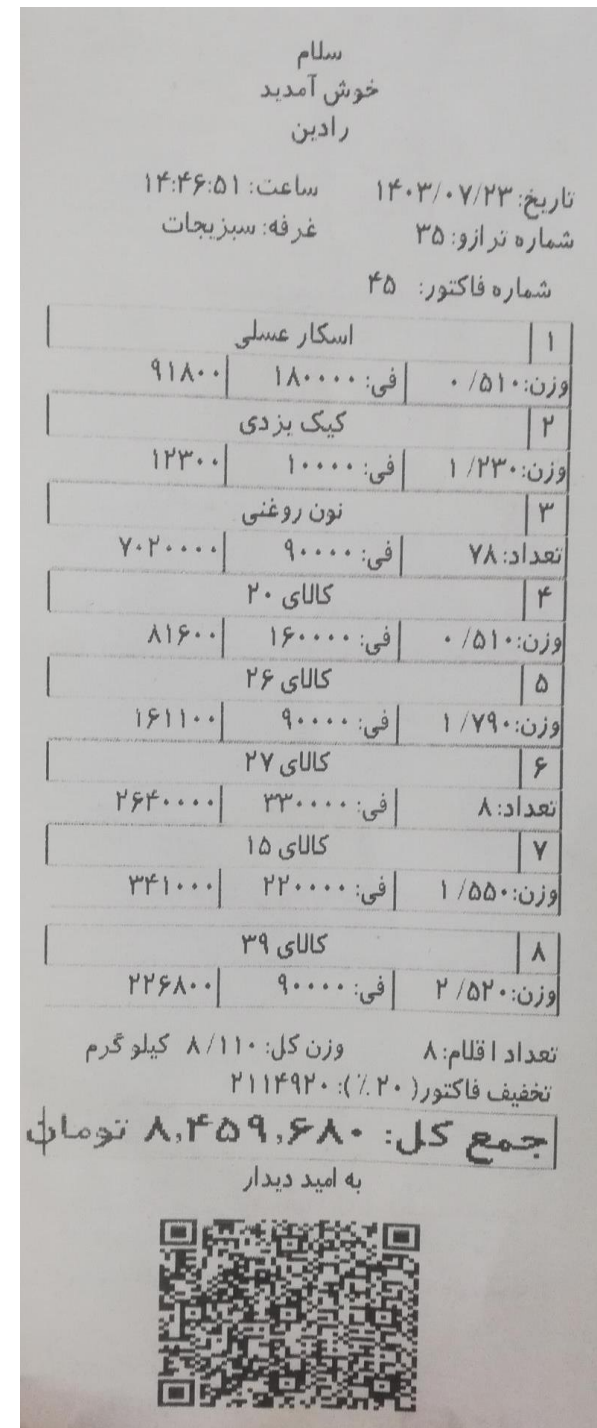 سلام
خوش آمدید
رادین
تاریخ: ۱۴۰۳/۰۷/۲۳ ساعت: ۱۴:۴۶:۵۱
شماره ترازو: ۳۵ غرفه: سبزیجات
شماره فاکتور: ۴۵
۱ اسکار عسلی
وزن: ۰/۵۱۰ فی: ۱۸۰۰۰۰ ۹۱۸۰۰
۲ کیک یزدی
وزن: ۱/۲۳۰ فی: ۱۰۰۰۰ ۱۲۳۰۰
۳ نون روغنی
تعداد: ۷۸ فی: ۹۰۰۰۰ ۷۰۲۰۰۰۰
۴ کالای ۲۰
وزن: ۰/۵۱۰ فی: ۱۶۰۰۰۰ ۸۱۶۰۰
۵ کالای ۲۶
وزن: ۱/۷۹۰ فی: ۹۰۰۰۰ ۱۶۱۱۰۰
۶ کالای ۲۷
تعداد: ۸ فی: ۳۳۰۰۰۰ ۲۶۴۰۰۰۰
۷ کالای ۱۵
وزن: ۱/۵۵۰ فی: ۲۲۰۰۰۰ ۳۴۱۰۰۰
۸ کالای ۳۹
وزن: ۲/۵۲۰ فی: ۹۰۰۰۰ ۲۲۶۸۰۰
تعداد اقلام: ۸ وزن کل: ۸/۱۱۰ کیلو گرم
تخفیف فاکتور( ۲۰ ٪): ۲۱۱۴۹۲۰
جمع کل: ۸,۴۵۹,۶۸۰ تومان
به امید دیدار